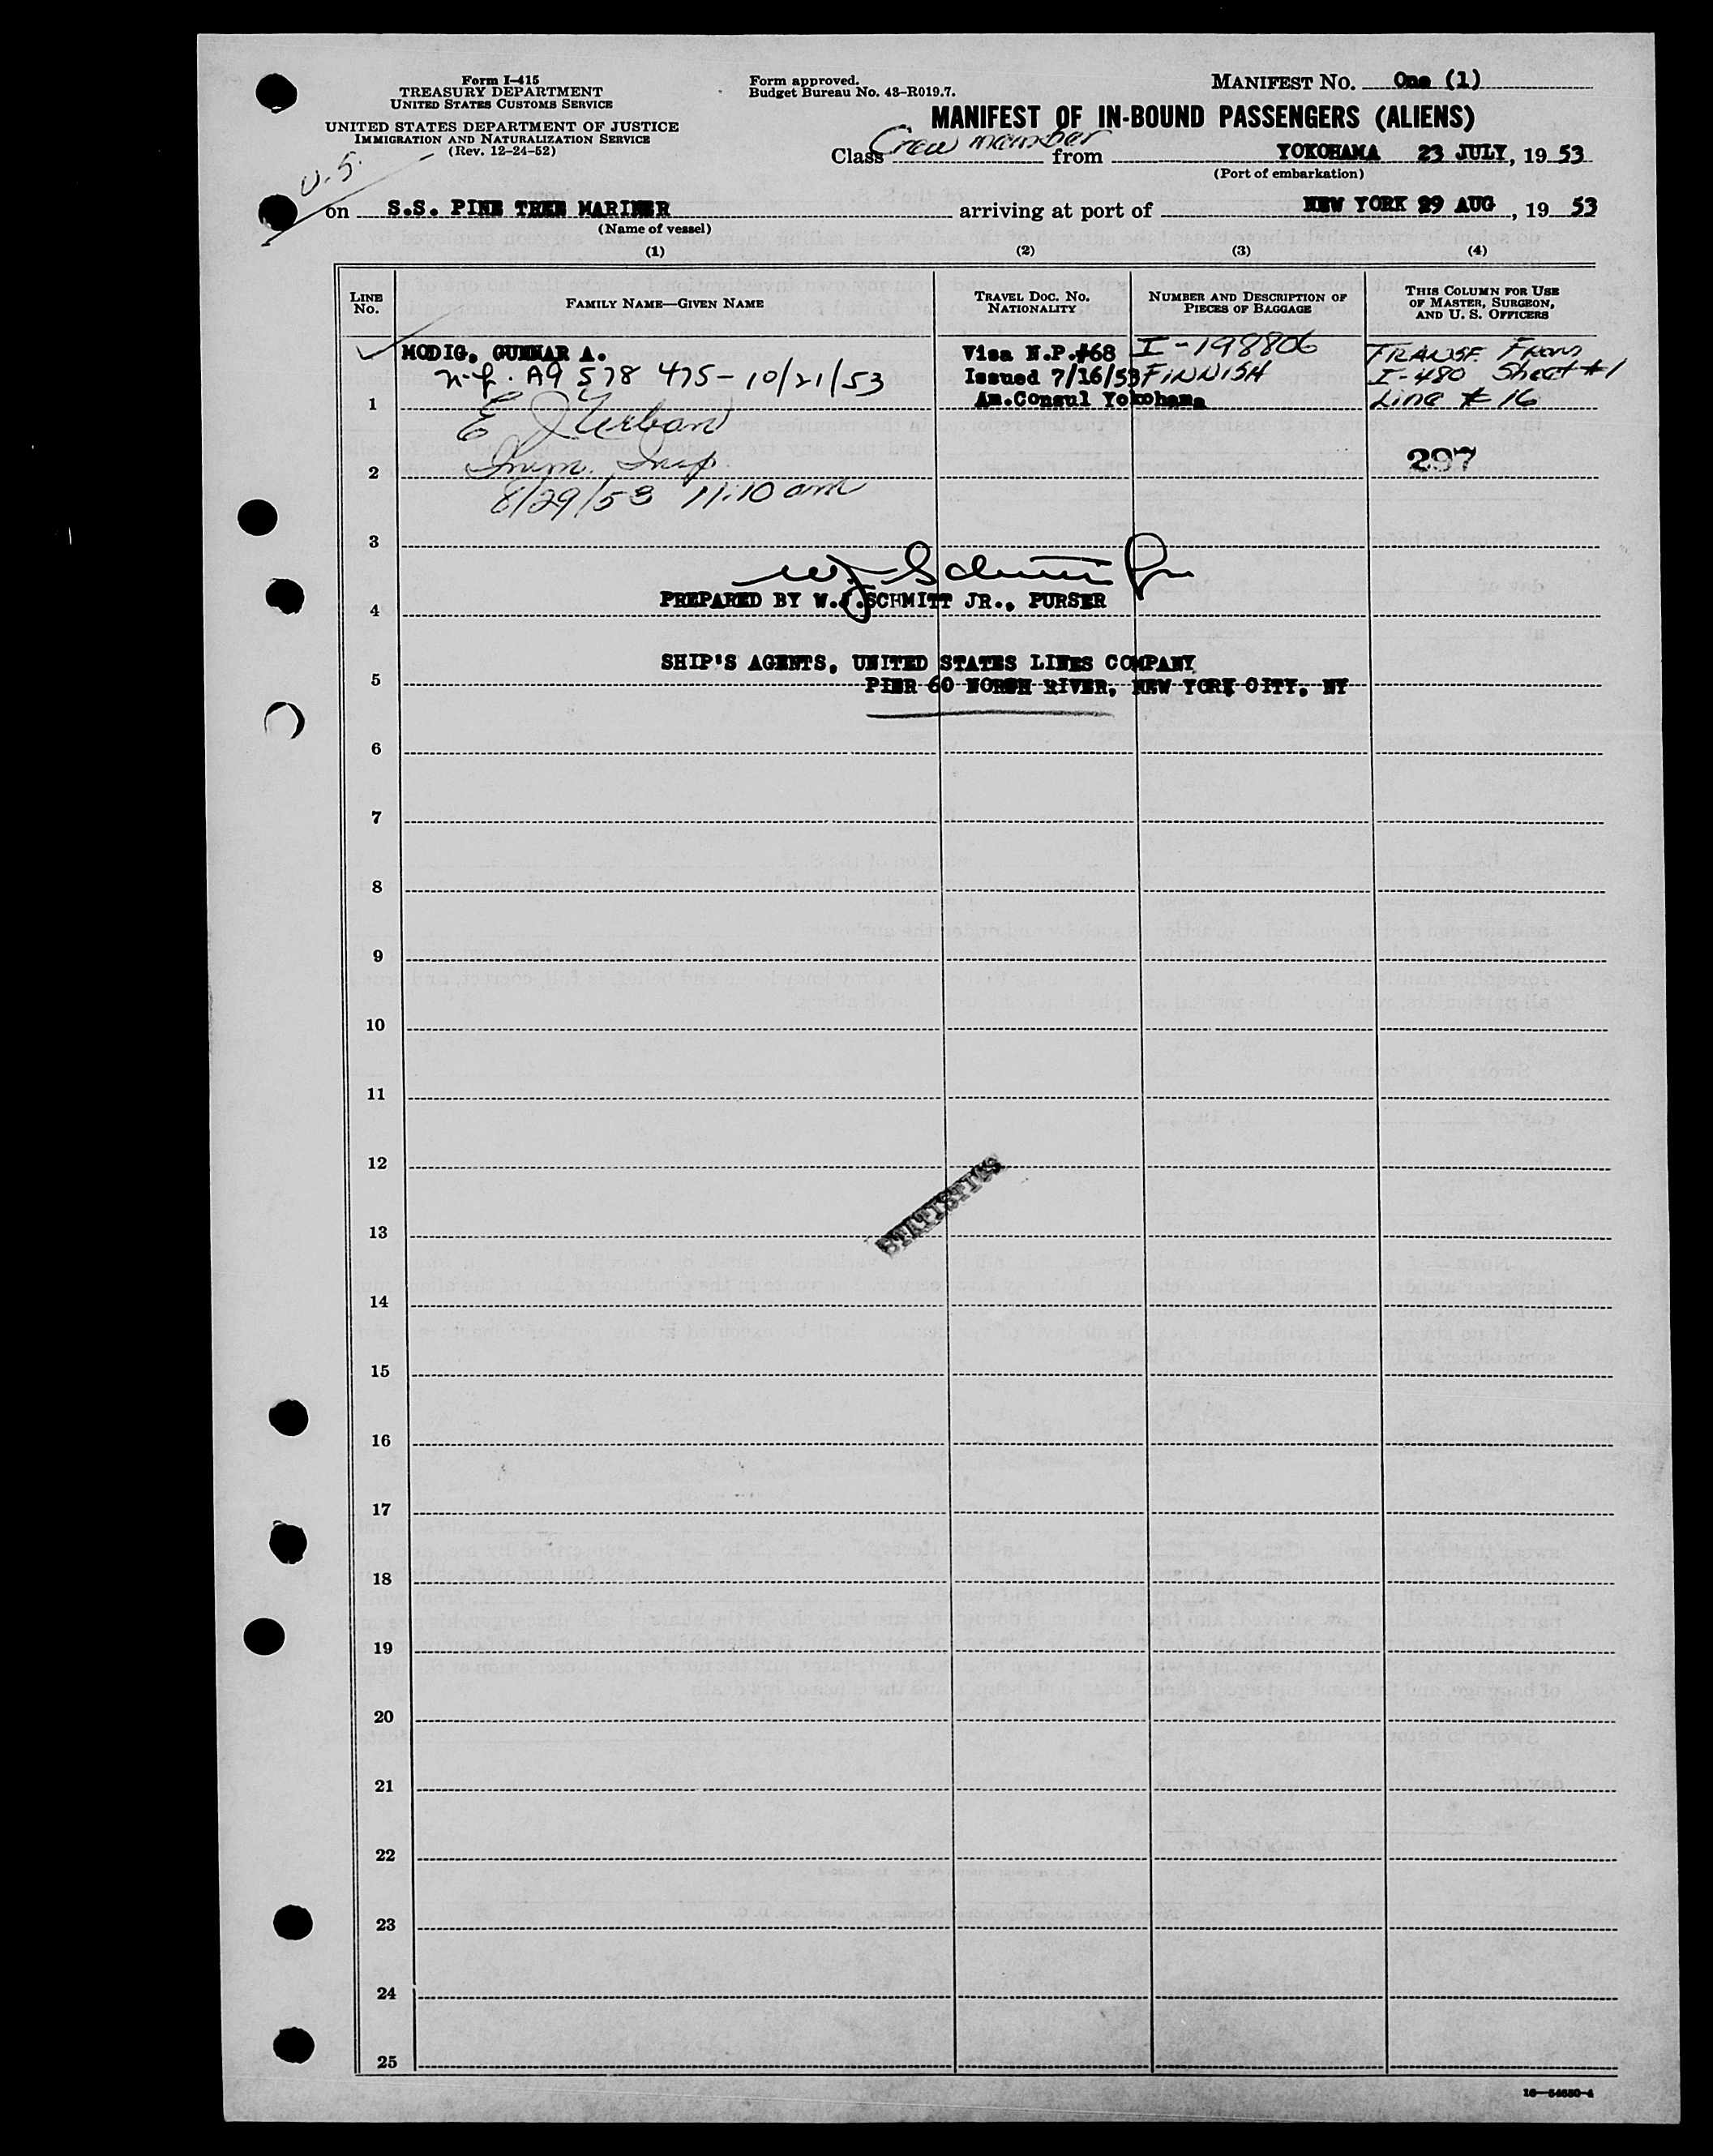 Form I-415
TREASURY DEPARTMENT
UNITED STATES CUSTOMS SERVICE
UNITED STATES DEPARTMENT OF JUSTICE
IMMIGRATION AND NATURALIZATION SERVICE
(Rev. 12-24-52)
U.S.
Form approved.
Budget Bureau No. 43-R019.7.
MANIFEST NO. One (1)
MANIFEST OF IN-BOUND PASSENGERS (ALIENS)
Class Crew member from YOKOHAMA 23 JULY, 19 53
(Port of embarkation)
on S.S. PINE TREE MARINER arriving at port of NEW YORK 29 AUG, 19 53
(Name of vessel)
(1) (2) (3) (4)
LINE NO. FAMILY NAME—GIVEN NAME TRAVEL DOC. NO. NATIONALITY NUMBER AND DESCRIPTION OF PIECES OF BAGGAGE THIS COLUMN FOR USE OF MASTER, SURGEON, AND U. S. OFFICERS
MODIG, GUNNAR A. Visa N.P.#68 I-198806 TRANSF. From
A9 578 475 - 10/21/53 Issued 7/16/53 FINNISH I-480 Sheet #1
1 Am.Consul Yokohama Line # 16
E J Urban
2 Imm. Insp. 297
8/29/53 11:10 am
3
W J Schmitt Jr
PREPARED BY W.J.SCHMITT JR., PURSER
4
SHIP'S AGENTS, UNITED STATES LINES COMPANY
5 PIER 60 NORTH RIVER, NEW YORK CITY, NY
6
7
8
9
10
11
12
STATISTICS
13
14
15
16
17
18
19
20
21
22
23
24
25
16—54650-4